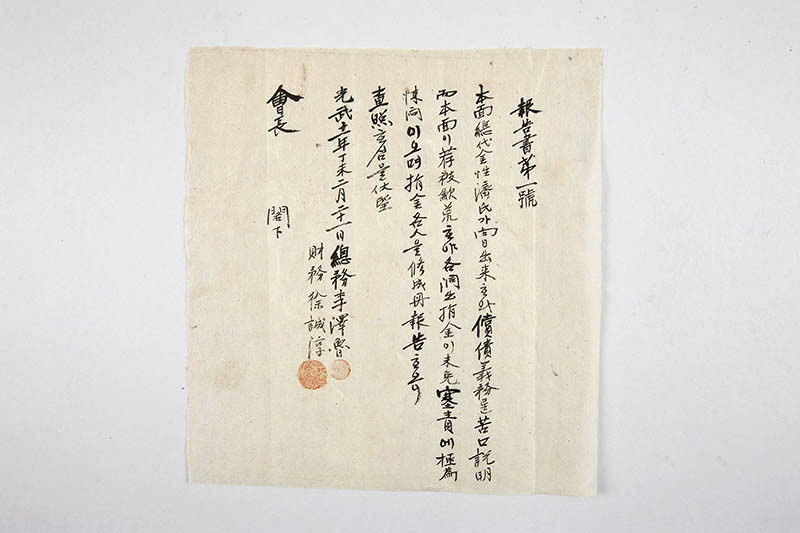 報告書第一號
本面總代金性濬氏가向日出来하와償債義務를苦口說明
而本面이荐被歉荒하야各洞出捐金이未免塞責에極爲
悚悶이오며捐金各人을修成冊報告하오니
查照하심을伏望
光武十一年丁未二月二十一日總務李澤魯
財務徐誠淳
會長 閣下